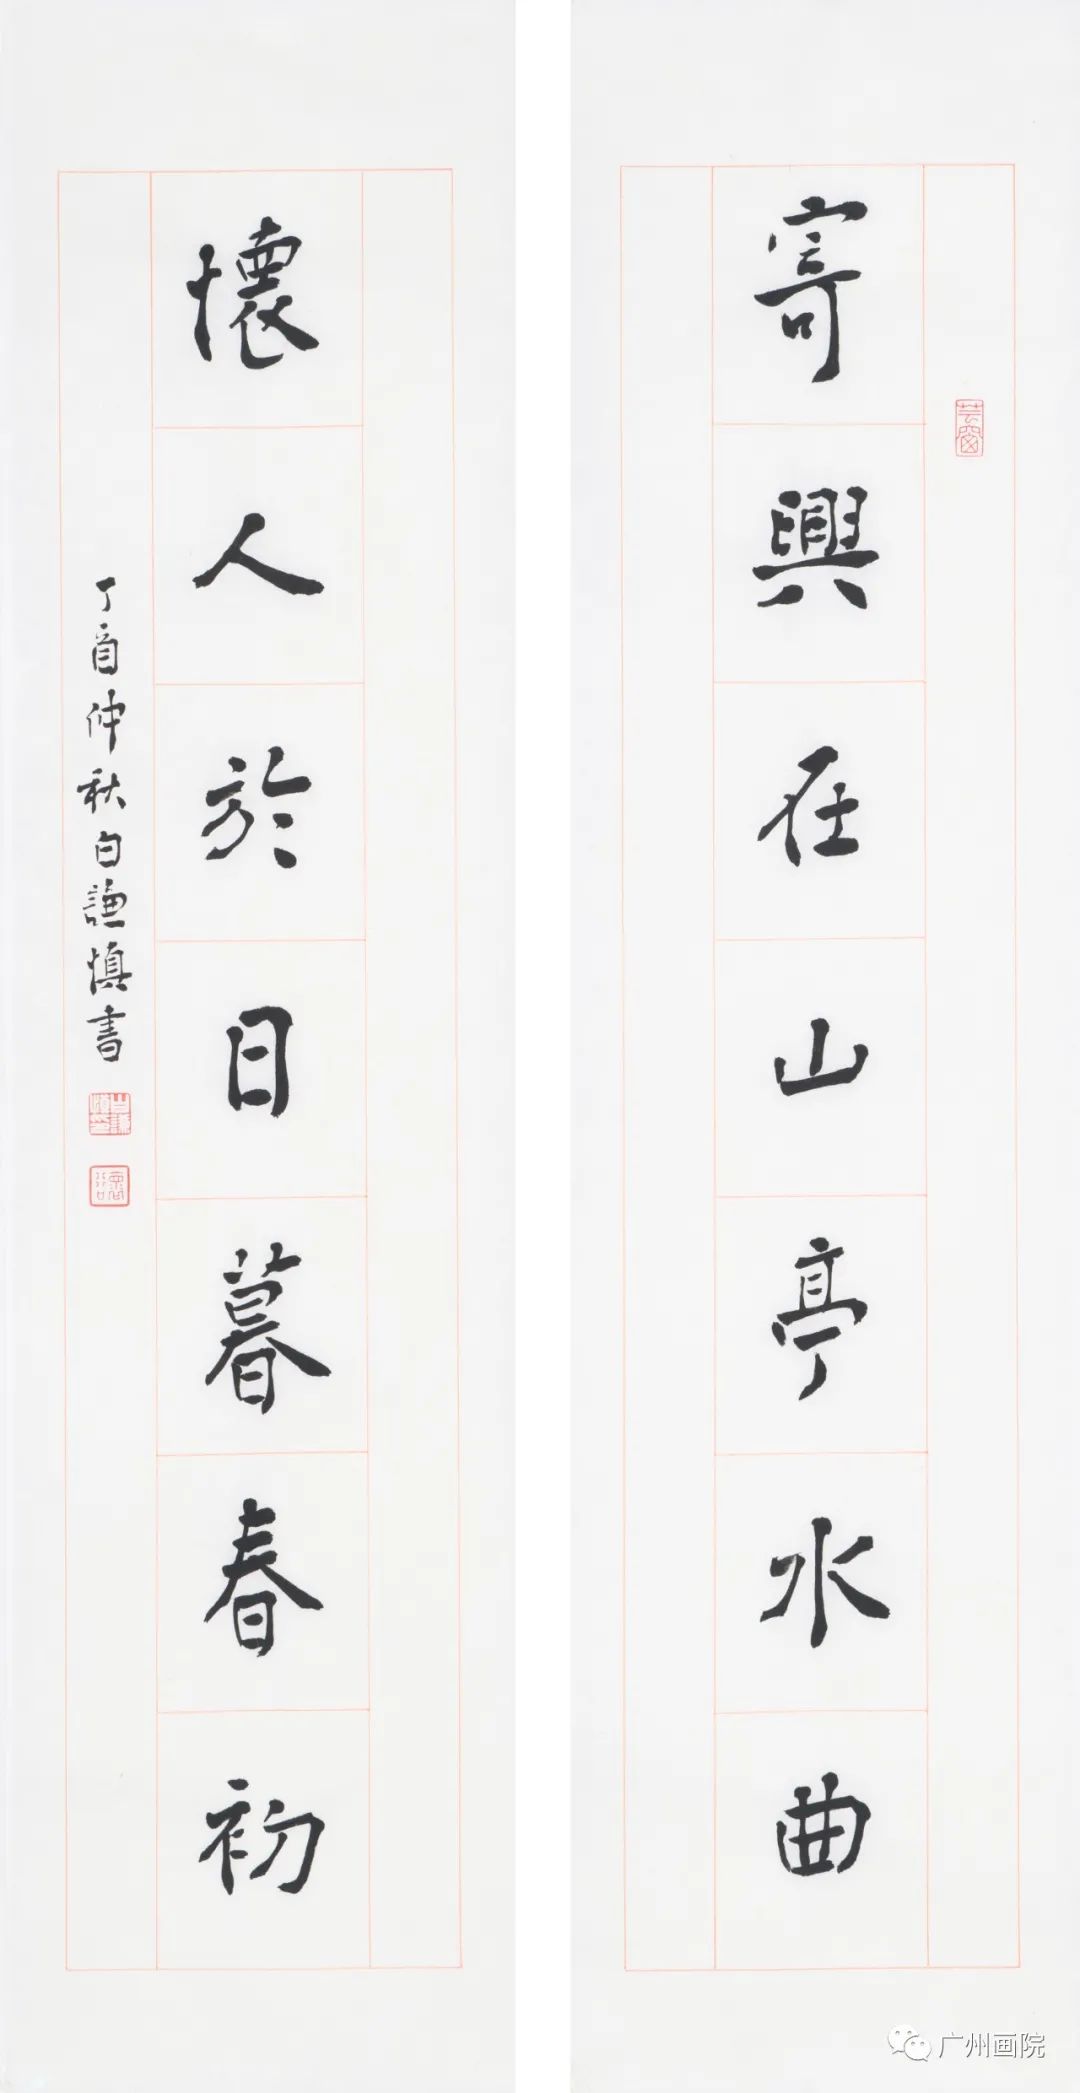 寄興在山亭水曲
芸窗
懷人於日暮春初
丁酉仲秋白謙慎書
广州画院